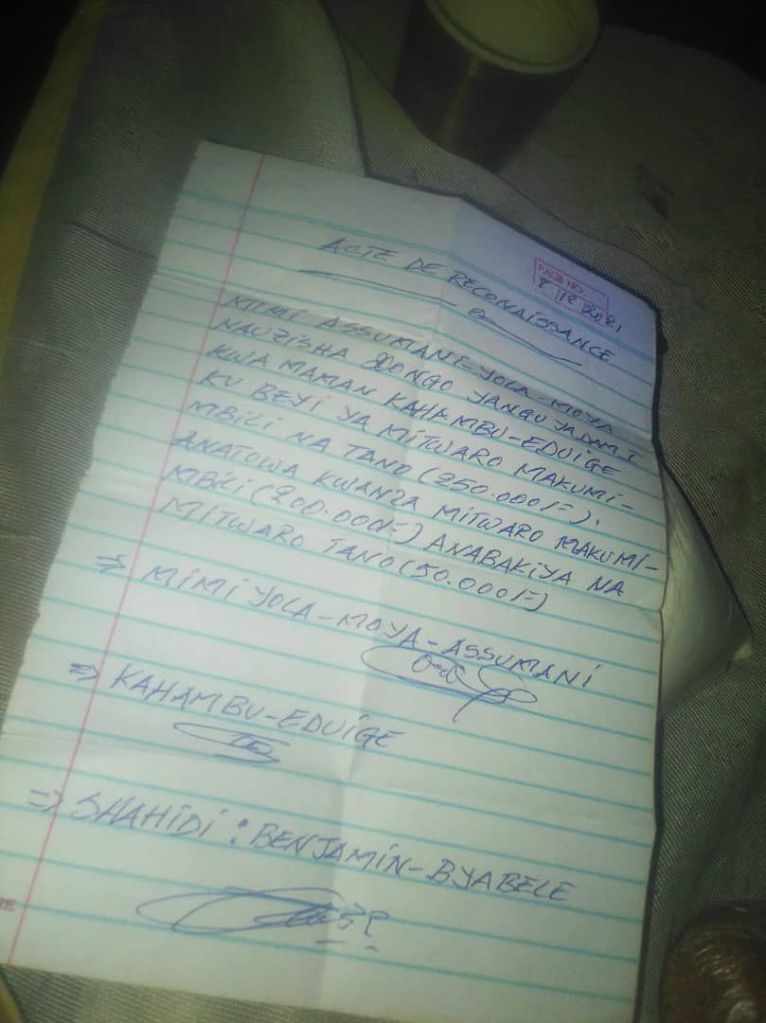 PAGE NO.
ACTE DE RECONAISSANCE
MIMI ASSUMANI-YOLA-MOYA
NAUZISHA DONGO YANGU YA
KWA MAMAN KAHAMBU-EDUIGE
KU BEYI YA MITWARO MAKUMI-
MBILI NA TANO (250.000F=).
ANATOWA KWANZA MITWARO MAKUMI-
MBILI (200.000F=) ANABAKIYA NA
MITWARO TANO (50.000F=)
=> MIMI YOLA-MOYA-ASSUMANI
=> KAHAMBU-EDUIGE
=> SHAHIDI : BENJAMIN-BYABELE